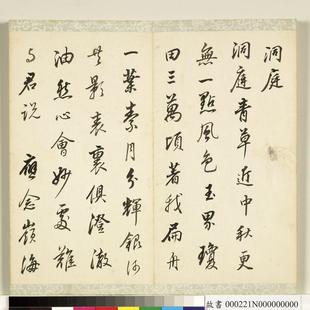 洞庭
洞庭青草近中秋更
無一點風色玉界瓊
田三萬頃著我扁舟
一葉素月分輝銀河
共影表裏俱澄澈
油然心會妙處難
与君説　應念嶺海
故書 000221N000000000